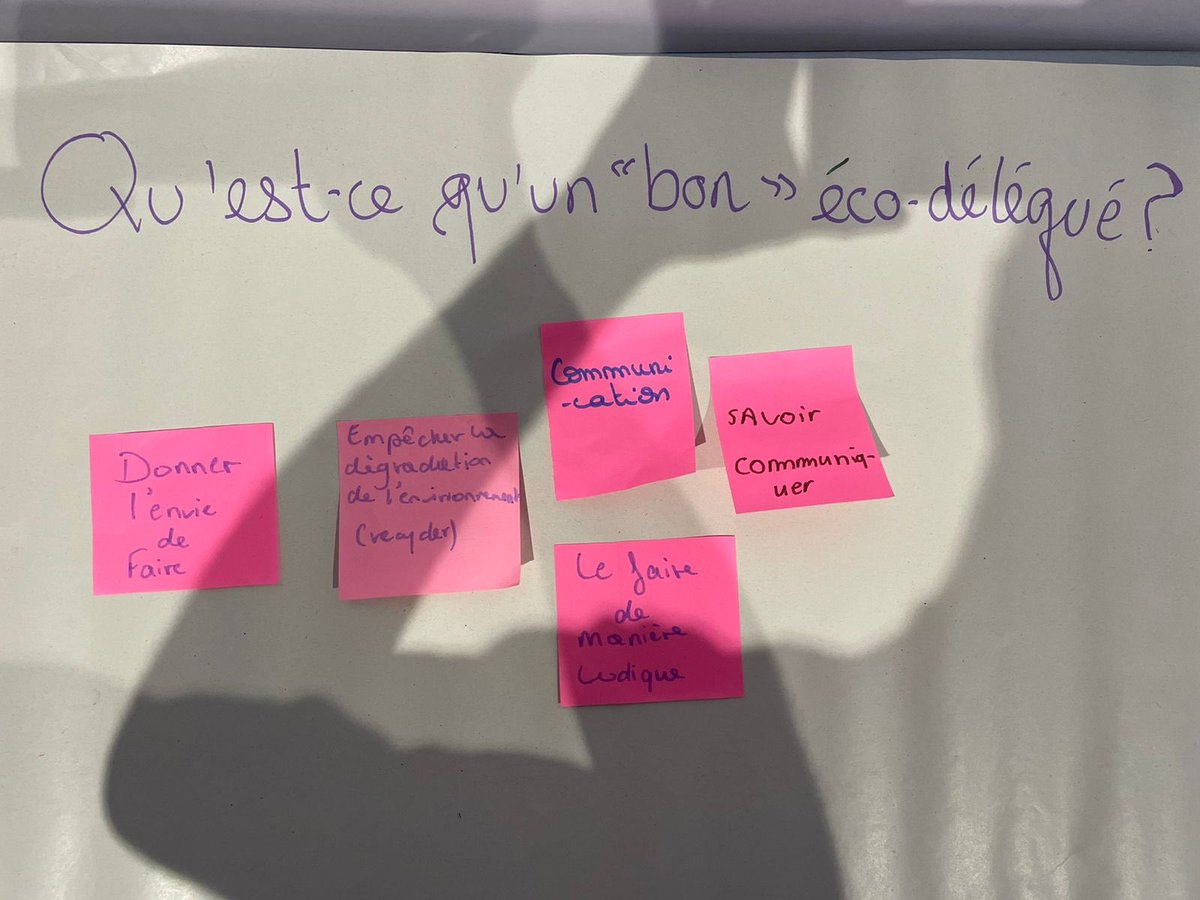 Qu'est-ce qu'un "bon" éco-délégué?
Donner
l'envie
de
Faire
Empêcher la
dégradation
de l'environnement
(recycler)
Communi
-cation
SAvoir
communiq-
uer
Le faire
de
manière
Ludique